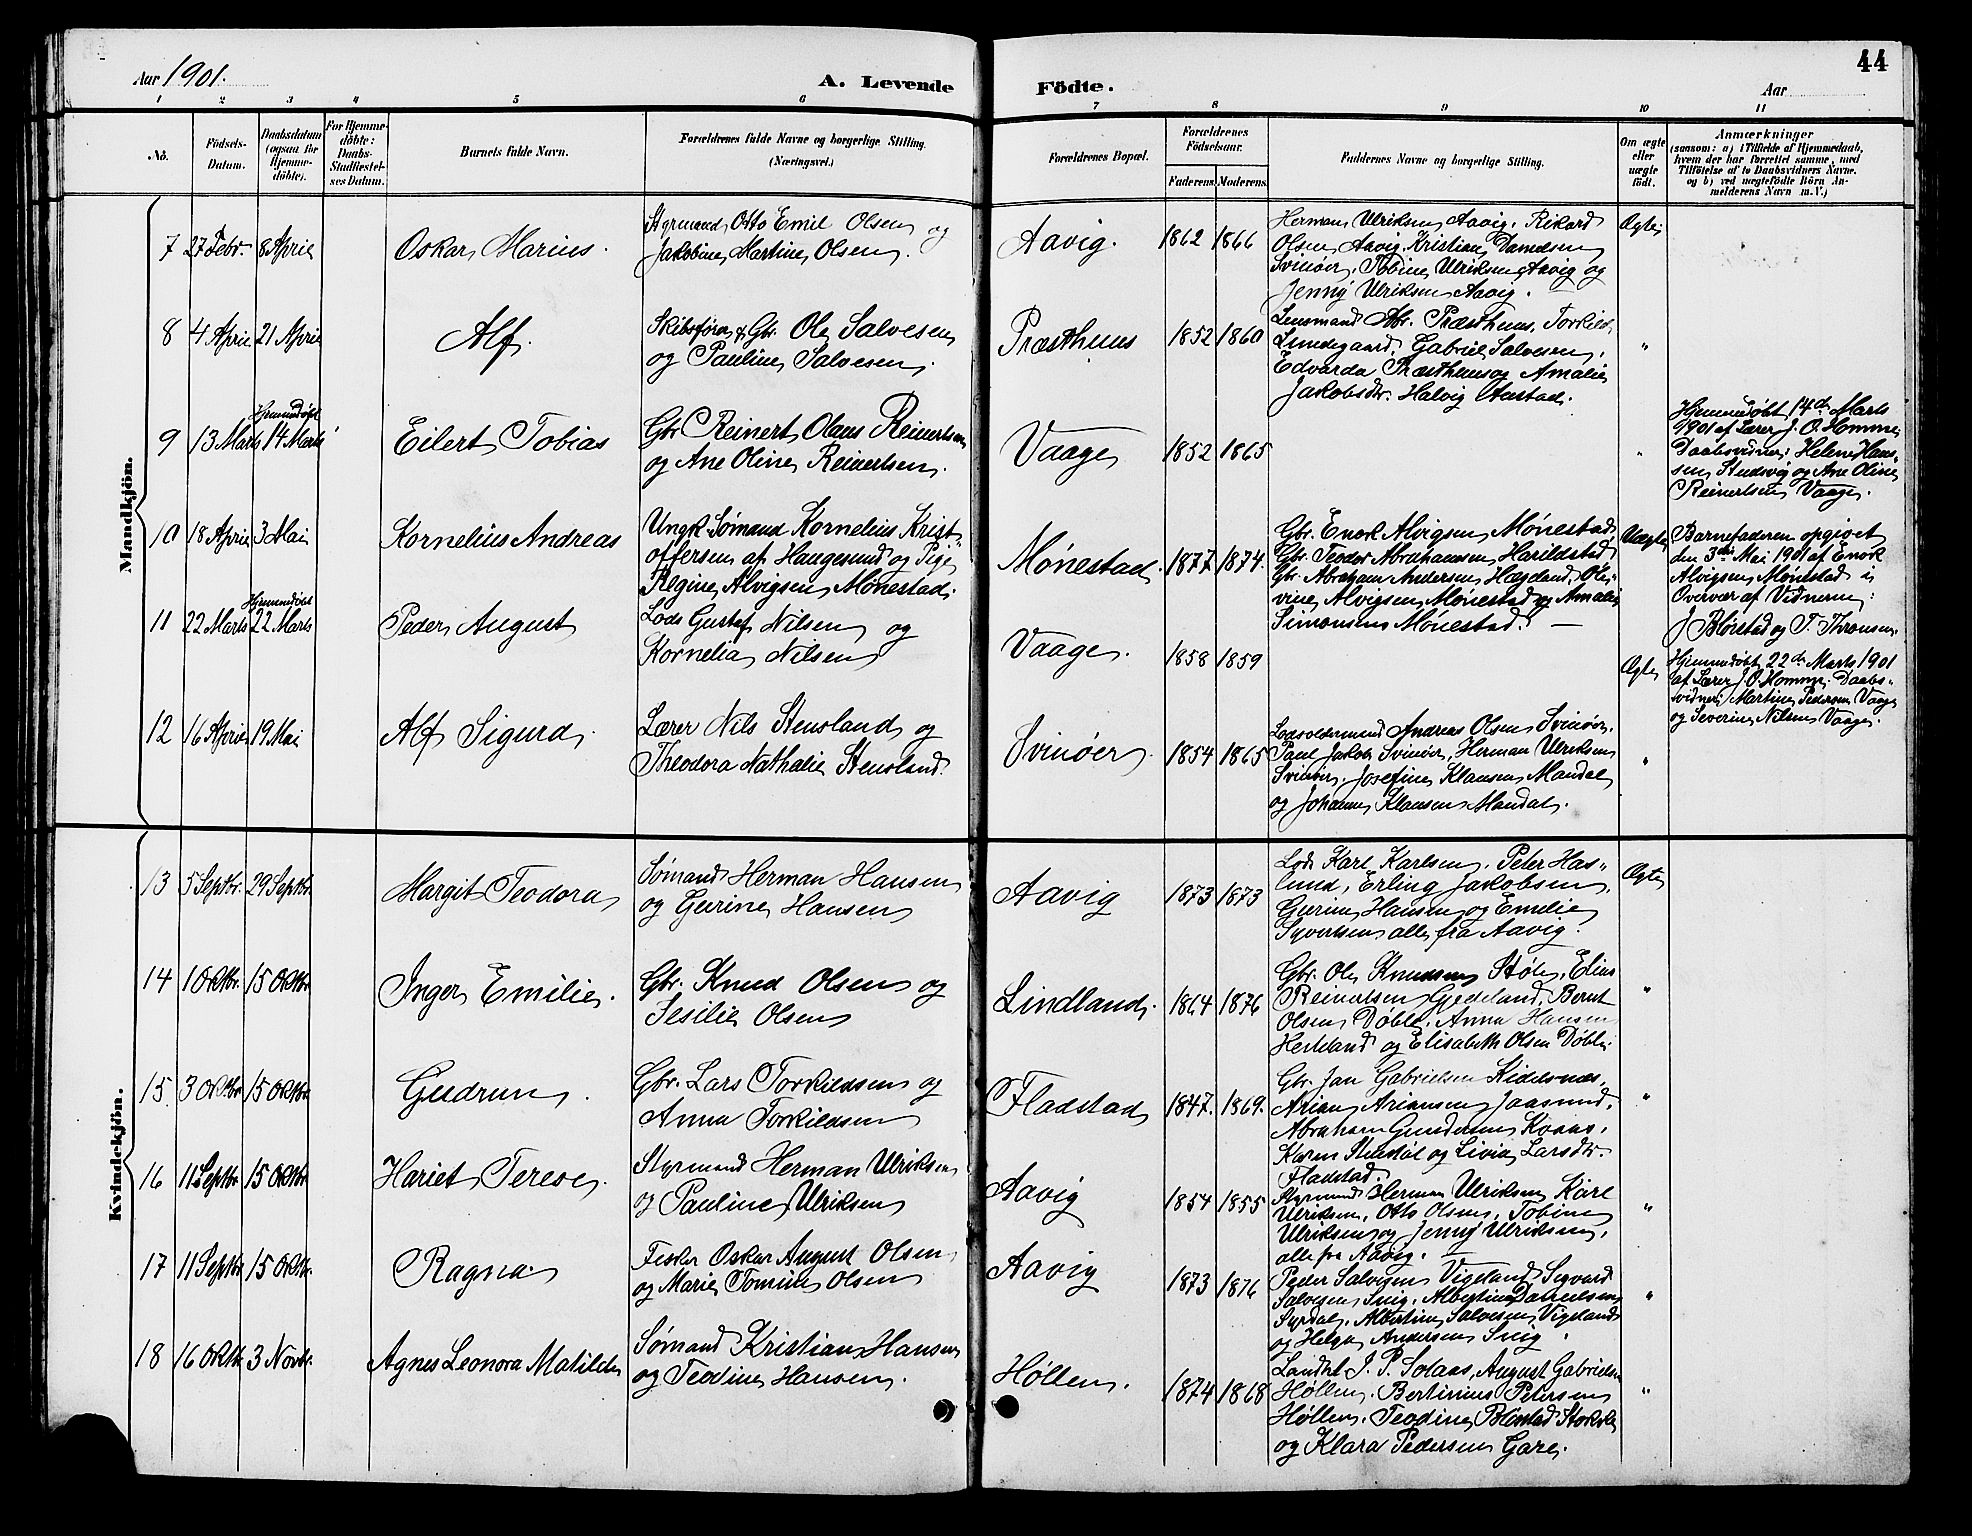 44
Aar 1901.
A. Levende
Födte.
Aar
1 2 3 4 5 6 7 8 9 10 11
No.
Födsels-
Datum.
Daabsdatum
(ogsaa for
Hjemme-
döbte).
For Hjemme-
döbte:
Daabs-
Stadfæstel-
ses Datum.
Barnets fulde Navn.
Forældrenes fulde Navne og borgerlige Stilling.
(Næringsvei.)
Forældrenes Bopæl.
Forældrenes
Födselsaar.
Faderens. Moderens.
Faddernes Navne og borgerlige Stilling.
Om ægte
eller
uægte
födt.
Anmærkninger
(saasom: a) i Tilfælde af Hjemmedaab,
hvem der har forrettet samme, med
Tilföielse af to Daabsvidners Navne.
og b) ved uægtefödte Börn An-
melderens Navn m.V.)
Mandkjön.
7 27 Febr. 8 April Oskar Marius.
Styrmand Otto Emil Olsen og
Jakobine Martine Olsen.
Aavig. 1862 1866
Herman Ulriksen Aavig, Rikard
Olsen Aavig, Kristian Danielsen
Svinöer, Tobine Ulriksen Aavig og
Jenny Ulriksen Aavig.
Ægte
8 4 April 21 April Alf.
Skibsfører & Gbr. Ole Salvesen
og Pauline Salvesen.
Præsthuus 1852 1860
Lensmand Abr. Præsthuus, Torkild
Lundegaard, Gabriel Salvesen,
Edvarda Præsthuus og Amalie
Jakobsdtr. Halvig Austad.
"
9 13 Marts Hjemmedøbt 14 Marts Eilert Tobias
Gbr. Reinert Olaus Reinertsen
og Ane Oline Reinertsen.
Vaage 1852 1865
"
Hjemmedøbt 14de Marts
1901 af Lærer J. O. Homme,
Daabsvidner: Helene Han-
sen, Studevig og Ane Oline
Reinertsen Vaage.
10 18 April 3 Mai Kornelius Andreas
Ungk. Sømand Kornelius Krist-
offersen af Haugesund og Pige
Regine Alvigsen Mønestad.
Mønestad. 1877 1874.
Gbr. Enok Alvigsen Mønestad,
Gbr. Teodor Abrahamsen Harildstad
Gbr. Abraham Andersen Hægland, Ole-
vine Alvigsen Mønestad og Amalie
Simonsen Mønestad. —
Uægte
Barnefaderen opgivet
den 3die Mai 1901 af Enok
Alvigsen Mønestad i
Overvær af Vidnerne:
J. Blørstad og T. Thronsen.
11 22 Marts Hjemmedøbt 22 Marts Peder August
Lods Gustaf Nilsen og
Kornelia Nilsen
Vaage. 1858 1859
Ægte
Hjemmedøbt 22de Marts 1901
af Lærer J. O. Homme. Daabs-
vidner: Martine Pedersen Vaage
og Severine Nilsen Vaage.
12 16 April 19 Mai Alf Sigurd.
Lærer Nils Stensland og
Theodora Nathalie Stensland.
Svinöer 1854 1865
Lodsoldermand Andreas Olsen Svinöer,
Paul Jakobs Svinöer, Herman Ulriksen
Svinöer, Josefine Klausen Mandal
og Johanne Klausen Mandal.
"
Kvindekjön.
13 5 Septbr. 29 Septbr. Margit Teodora
Sømand Herman Hansen
og Gurine Hansen
Aavig 1873 1873
Lods Karl Karlsen, Peter Has-
lund, Erling Jakobsen,
Gurine Hansen og Emilie
Syvertsen alle fra Aavig.
Ægte
14 1 Oktbr. 15 Oktbr. Inger Emilie.
Gbr. Knud Olsen og
Sesilie Olsen
Lindland. 1864 1876
Gbr. Ole Knudsen Støle, Elias
Reinertsen Gjedeland, Bernt
Olsen Døble, Anna Hansen
Herteland og Elisabeth Olsen Døble.
"
15. 3 Oktbr 15 Oktbr Gudrun.
Gbr. Lars Torkildsen og
Anna Torkildsen
Fladstad 1847. 1869.
Gbr. Jan Gabrielsen Kidelsnæs,
Arian Ariansen Jaasund,
Abraham Gundersen Kvaas,
Karen Stustøl og Livia Larsdtr.
Fladstad.
"
16 11 Septbr 15 Oktbr Hariet Terese
Styrmand Herman Ulriksen
og Pauline Ulriksen
Aavig 1854 1855
Styrmand Herman Ulriksen, Karl
Ulriksen, Otto Olsen, Tobine
Ulriksen og Jenny Ulriksen,
alle fra Aavig. —
"
17 11 Septbr 15 Oktbr. Ragna.
Fisker Oskar August Olsen
og Marie Tomine Olsen
Aavig 1873 1876
Peder Salvesen Vigeland, Sigvard
Salvesen Svig, Albertine Danielsen
Syrdal, Albertine Salvesen Vigeland
og Helga Andersen Svig.
"
18 16 Oktbr. 3 Novbr. Agnes Leonora Matilde
Sømand Kristian Hansen
og Teodine Hansen.
Höllen. 1874 1868
Landhdl. J. P. Solaas, August Gabrielsen
Höllen, Bertinius Petersen
Höllen, Teodine Blørstad Stokke
og Klara Pedersen Gare.
"